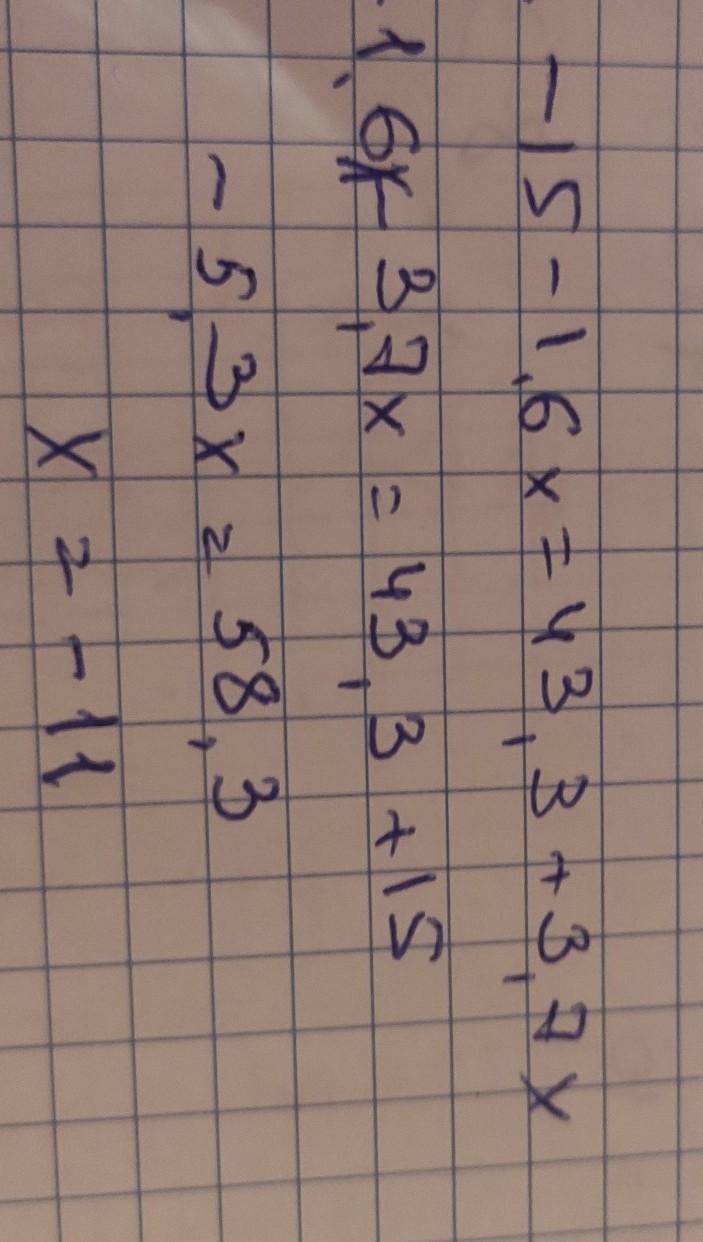 -15-1,6x=43,3+3,7x
-1,6x-3,7x=43,3+15
-5,3x=58,3
x=-11